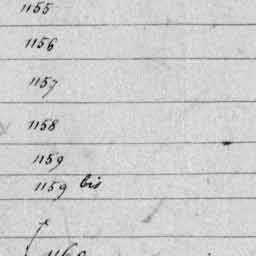 1155
1156
1157
1158
1159
1159 bis
1160